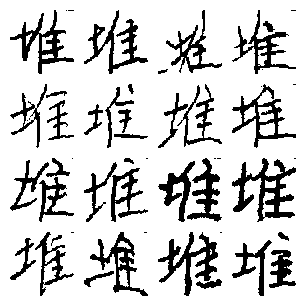 堆堆堆堆
堆堆堆堆
堆堆堆堆
堆堆堆堆